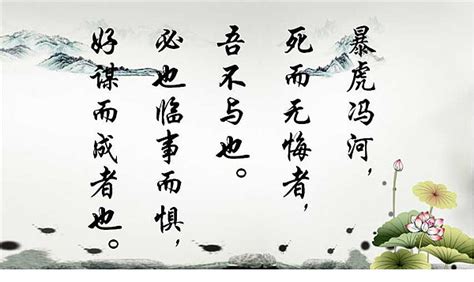 暴虎冯河，
死而无悔者，
吾不与也。
必也临事而惧，
好谋而成者也。